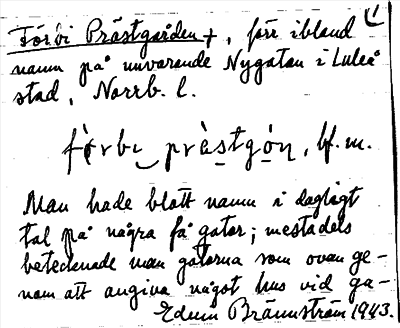 Förbi Prästgården +, förr ibland
namn på nuvarande Nygatan i Luleå
stad, Norrb. l.
fǫ̀rbi prä̀stgọ̄n, bf. m.
Man hade blott namn i dagligt
tal på några få gator; mestadels
betecknade man gatorna som ovan ge-
nom att angiva något hus vid ga-
Edvin Brännström 1943.